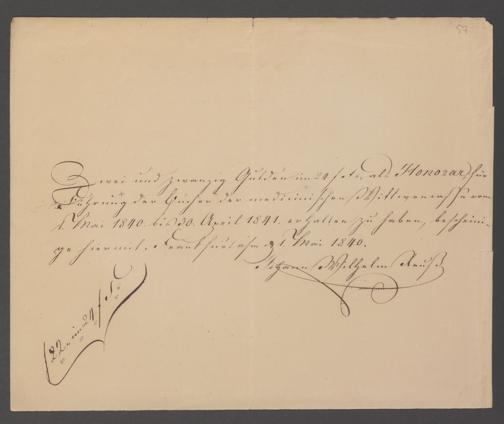 57
Zwei und zwanzig Gulden im 24 f. f., als Honorar für
Führung der Bücher der medicinischen Wittwencasse vom
1. Mai 1840 bis 30. April 1841 erhalten zu haben, beschein-
ige hiermit. Frankfurt a/m 1. Mai 1840.
Johann Wilhelm Reuß
22 im 24 f. f.